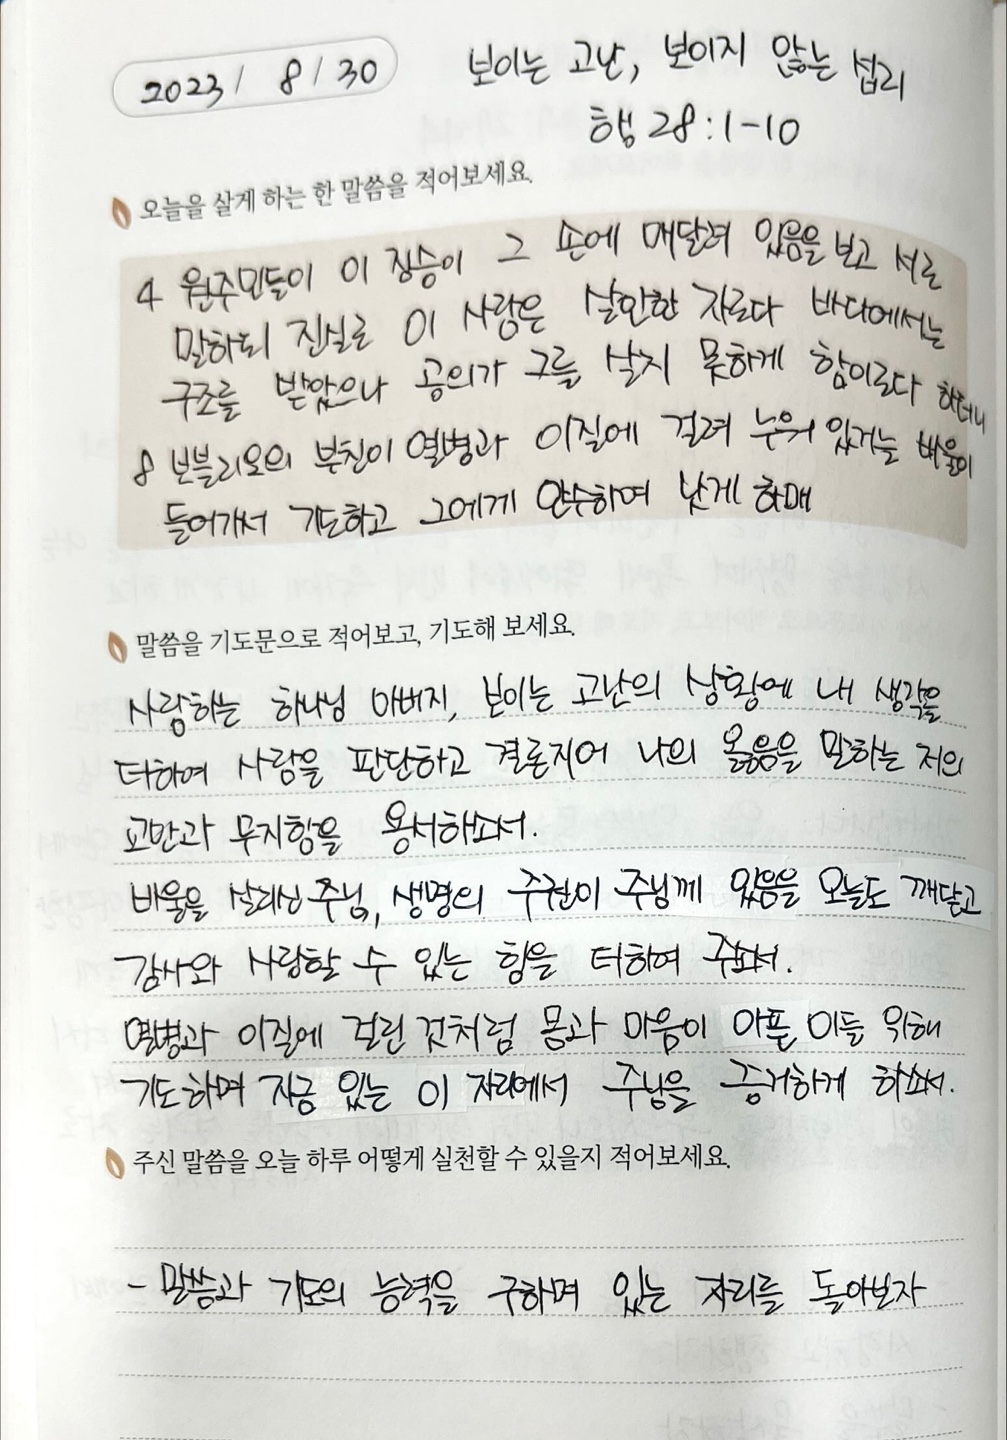 2023/ 8/30
보이는 고난, 보이지 않는 섭리
행 28:1-10
오늘을 살게 하는 한 말씀을 적어보세요.
4 원주민들이 이 짐승이 그 손에 매달려 있음을 보고 서로
말하되 진실로 이 사람은 살인한 자로다 바다에서는
구조를 받았으나 공의가 그를 살지 못하게 함이로다 하더니
8 보블리오의 부친이 열병과 이질에 걸려 누워 있거늘 바울이
들어가서 기도하고 그에게 안수하여 낫게 하매
말씀을 기도문으로 적어보고, 기도해 보세요.
사랑하는 하나님 아버지, 보이는 고난의 상황에 내 생각을
더하여 사람을 판단하고 결론지어 나의 옳음을 말하는 저의
교만과 무지함을 용서하소서.
바울을 살리신 주님, 생명의 주권이 주님께 있음을 오늘도 깨닫고
감사와 사랑할 수 있는 힘을 더하여 주소서.
열병과 이질에 걸린 것처럼 몸과 마음이 아픈 이들 위해
기도하며 지금 있는 이 자리에서 주님을 증거하게 하소서.
주신 말씀을 오늘 하루 어떻게 실천할 수 있을지 적어보세요.
- 말씀과 기도의 능력을 구하며 있는 자리를 돌아보자